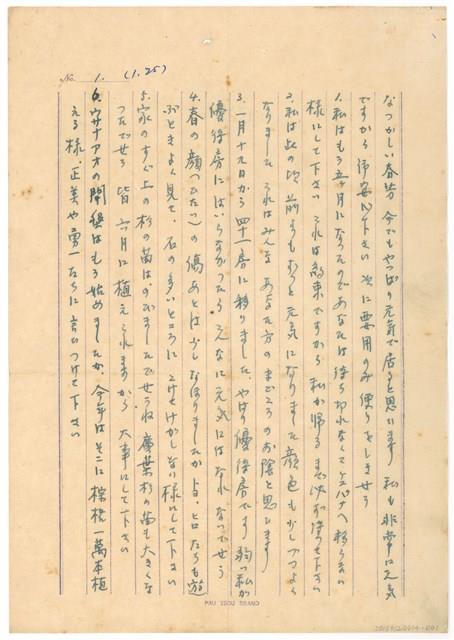 No. 1. (1.25)
なつかしい春芳 今でもやっぱり元気で居ると思います 私も非常に元気
ですから御安心下さい 次に要用のみ便りをしませう
1.私はもう五ヶ月になったのであなたは待ち切れなくてへ移らない
様にして下さい これは約束ですから 私が帰るまで必ず待って下さい
2.私は此の頃前よりもずっと元気になりました 顔色も少しづつよく
なりました これはみんなあなた方のまごころのお陰と思ひます
3.一月十九日から四十一房に移りました、やはり優待房です 弱い私が
優待房にはいらなかったら こんなに元気にはなれないでせう
4.春の顔(ひたい)の傷あとは少しなほりましたか ヒロたちも遊
ぶときよく見て、石の多いところにこけてけがしない様にして下さい
5.家のすぐ上の杉の苗はのびましたでせうね 廣葉杉の苗も大きくな
ったでせう 皆 六月に植えられますから 大事にして下さい
6.ウサナアオの開墾はもう始めましたか、今年はそこに棕梠一萬本植
える様、正美や勇一たちに言ひつけて下さい
PAU TSOU BRAND